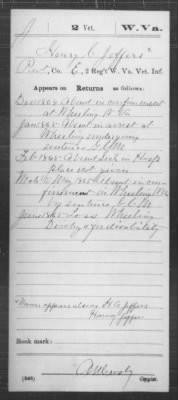 J 2 Vet. W. Va.
Henry C. Jeffers
Pvt., Co. E, 2 Reg't W. Va. Vet. Inf.
Appears on Returns as follows:
Dec 1864 Absent in confinement
at Wheeling W. Va
Jan 1865 Absent in arrest at
Wheeling undergoing
sentence G.C.M.
Feb 1865 Absent sick in Hosp
place not given
May 1865 Absent in con
finement in Wheeling W. Va
by sentence G.C.M.
June 1865 Loss Wheeling
disability
Name appears also as H. C. Jeffers
Book mark:
(546) Copyist.